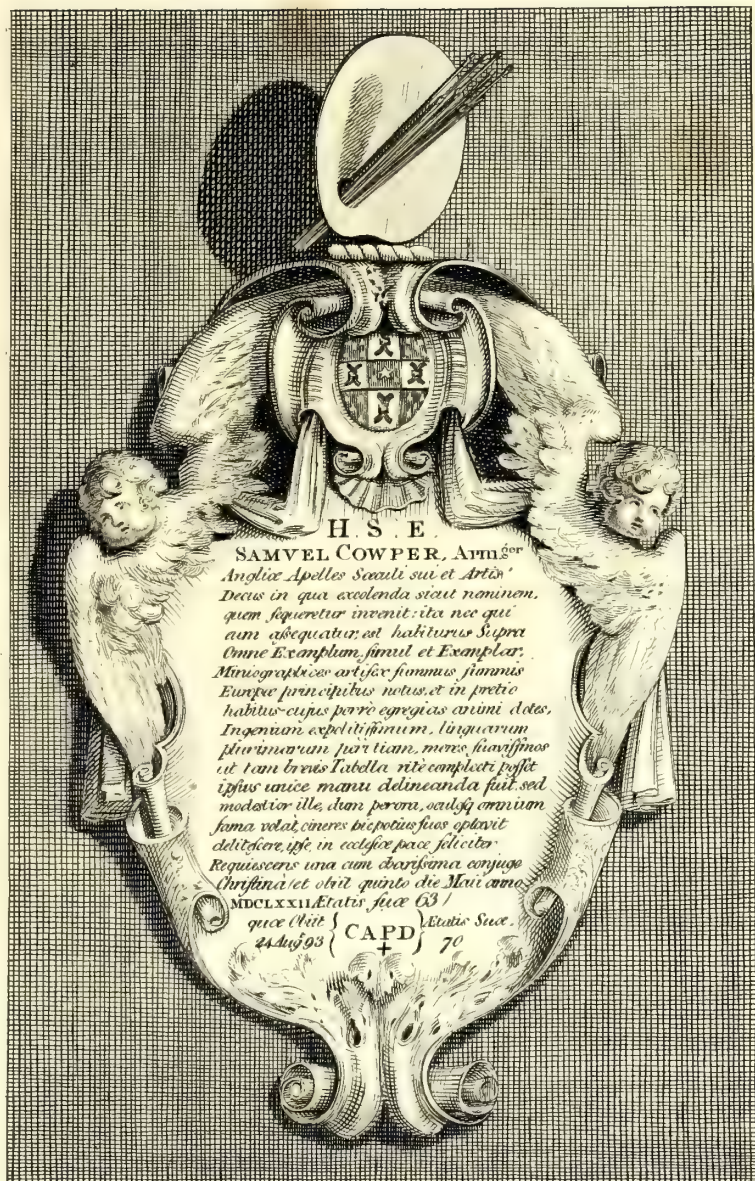 H. S. E.
SAMVEL COWPER, Armger
Angliæ Apelles Sœculi sui et Artis
Decus in qua excolenda sicut neminem,
quem sequeretur invenit: ita nec qui
eum assequatur, est habiturus Supra
Omne Exemplum, simul et Exemplar.
Miniographices artifex summus summis
Europæ principibus notus, et in pretio
habitus cujus porrò egregias animi dotes,
Ingenium expolitissimum, linguarum
plurimarum peritiam, mores suavissimos
ut tam brevis Tabella ritè complecti posset
ipsius unice manu delineanda fuit, sed
modestior ille, dum per ora, oculosq omnium
fama volat, cineres hic potius suos optavit
delitescere, ipse, in ecclesiæ pace feliciter
Requiescens una cum charissima conjuge
Christinâ! et obiit quinto die Maii anno
MDCLXXII Ætatis suæ 63 !
quæ Obiit { CAPD } Ætatis Suæ.
24 Aug 93 70